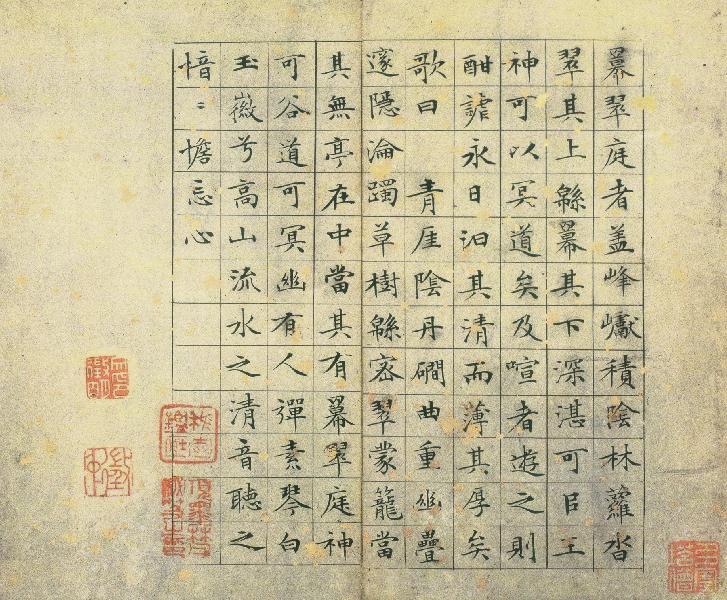 羃翠庭者盖峰巘積陰林蘿沓
翠其上緜羃其下深湛可㠯王
神可以冥道矣及喧者遊之則
酣謔永日汩其清而薄其厚矣
歌曰　青厓陰丹磵曲重幽疊
邃隱淪躅草樹緜密翠蒙蘢當
其無亭在中當其有羃翠庭神
可谷道可冥幽有人彈素琴白
玉徽兮高山流水之清音聽之
愔〻憺忘心